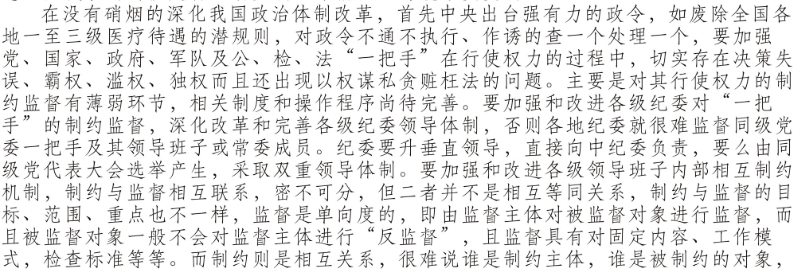 在没有硝烟的深化我国政治体制改革，首先中央出台强有力的政令，如废除全国各
地一至三级医疗待遇的潜规则，对政令不通不执行、作诱的查一个处理一个，要加强
党、国家、政府、军队及公、检、法“一把手”在行使权力的过程中，切实存在决策失
误、霸权、滥权、独权而且还出现以权谋私贪赃枉法的问题。主要是对其行使权力的制
约监督有薄弱环节，相关制度和操作程序尚待完善。要加强和改进各级纪委对“一把
手”的制约监督，深化改革和完善各级纪委领导体制，否则各地纪委就很难监督同级党
委一把手及其领导班子或常委成员。纪委要升垂直领导，直接向中纪委负责，要么由同
级党代表大会选举产生，采取双重领导体制。要加强和改进各级领导班子内部相互制约
机制，制约与监督相互联系，密不可分，但二者并不是相互等同关系，制约与监督的目
标、范围、重点也不一样，监督是单向度的，即由监督主体对被监督对象进行监督，而
且被监督对象一般不会对监督主体进行“反监督”，且监督具有对固定内容、工作模
式，检查标准等等。而制约则是相互关系，很难说谁是制约主体，谁是被制约的对象，